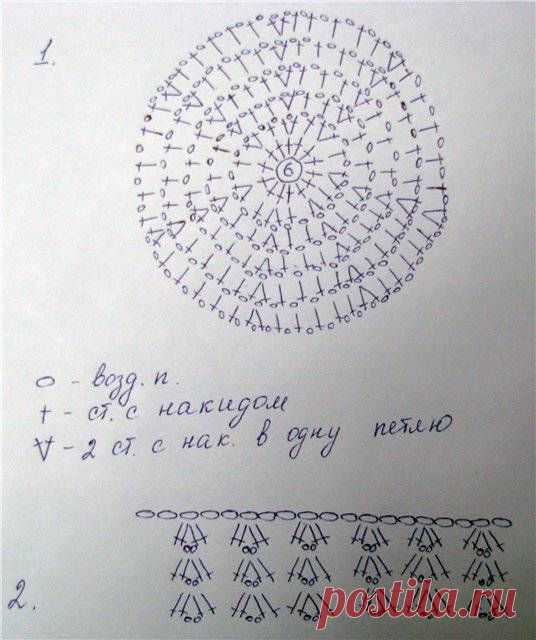 1.
6
о - возд. п.
† - ст. с накидом
V - 2 ст. с нак. в одну петлю
2.
postila.ru